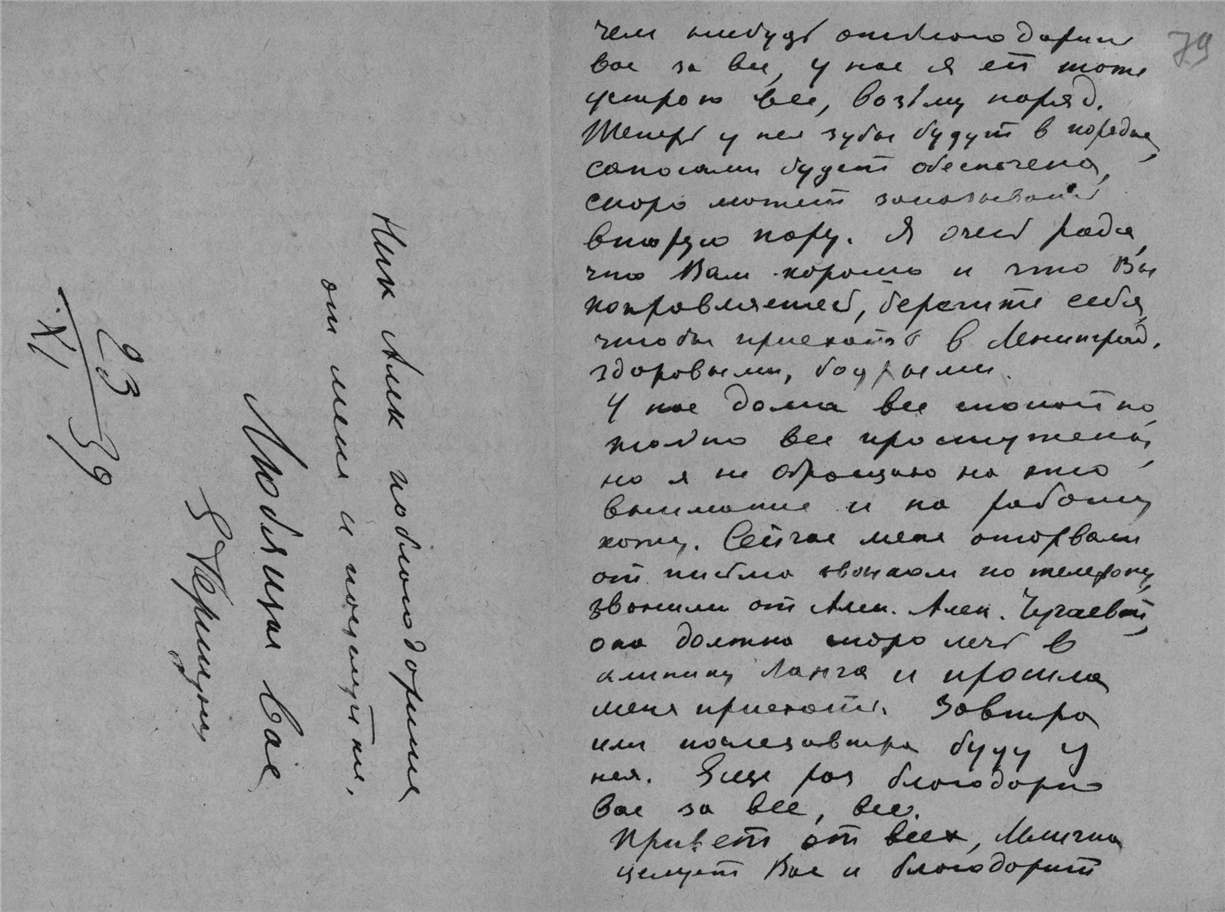 79
чем нибудь отблагодарить
вас за все, у нас я ей тоже
устрою все, возьму наряд.
Теперь у нея зубы будут в порядке,
сапогами будет обеспечена,
скоро может заказывать
вторую пару. Я очень рада,
что Вам хорошо и что Вы
поправляетесь, берегите себя,
чтобы приехать в Ленинград.
здоровыми, бодрыми.
У нас дома все
все простужены,
но я не обращаю на это
внимание и на работу
хожу. Сейчас меня оторвали
от письма звонком по телефону,
звонили от Алек. Алек. Чугаевой,
она должна скоро лечь в
клинику Ланга и просила
меня приехать. Завтра
или послезавтра буду у
нея. Еще раз благодарю
Вас за все, все.
Привет от всех,
целует Вас и благодарит
Ник Алек поблагодарите
от меня и поцелуйте.
Любящая Вас
23
XI 39